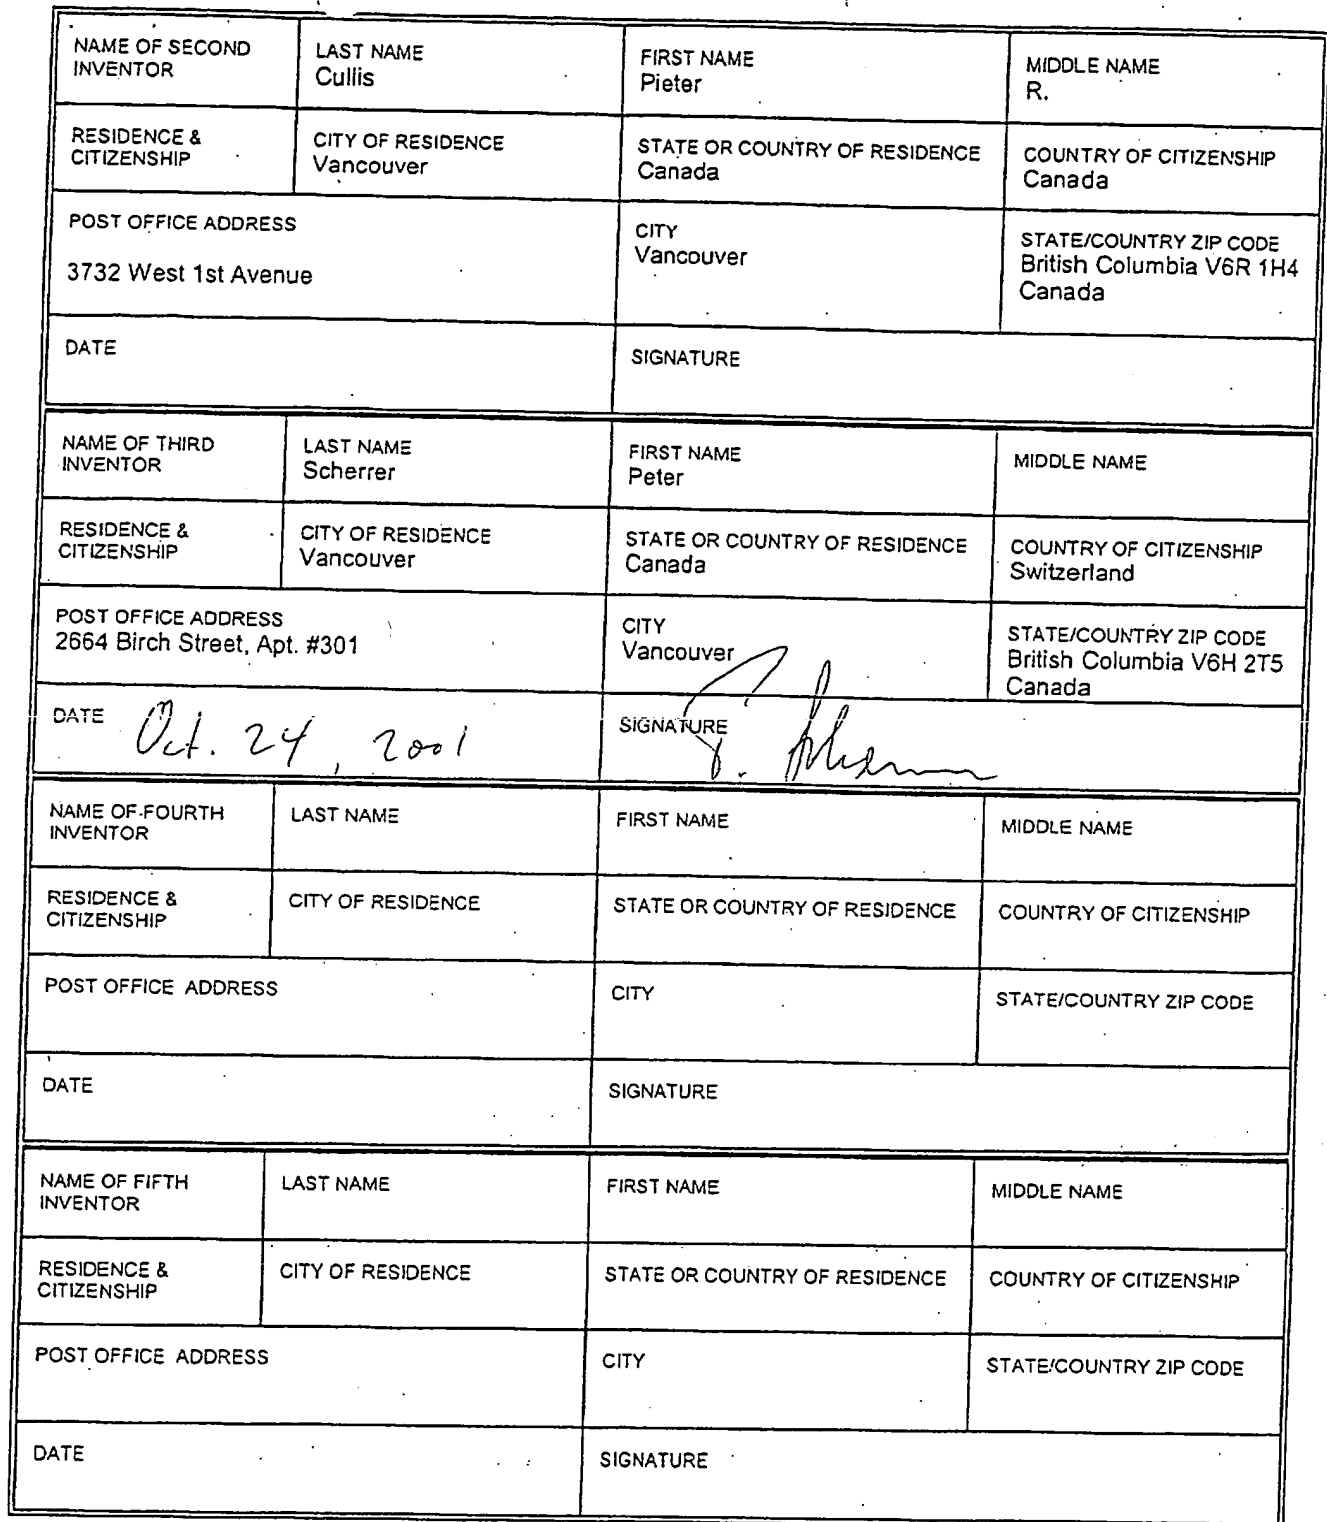 NAME OF SECOND INVENTOR
LAST NAME
Cullis
FIRST NAME
Pieter
MIDDLE NAME
R.
RESIDENCE & CITIZENSHIP
CITY OF RESIDENCE
Vancouver
STATE OR COUNTRY OF RESIDENCE
Canada
COUNTRY OF CITIZENSHIP
Canada
POST OFFICE ADDRESS
3732 West 1st Avenue
CITY
Vancouver
STATE/COUNTRY ZIP CODE
British Columbia V6R 1H4
Canada
DATE
SIGNATURE
NAME OF THIRD INVENTOR
LAST NAME
Scherrer
FIRST NAME
Peter
MIDDLE NAME
RESIDENCE & CITIZENSHIP
CITY OF RESIDENCE
Vancouver
STATE OR COUNTRY OF RESIDENCE
Canada
COUNTRY OF CITIZENSHIP
Switzerland
POST OFFICE ADDRESS
2664 Birch Street, Apt. #301
CITY
Vancouver
STATE/COUNTRY ZIP CODE
British Columbia V6H 2T5
Canada
DATE Oct. 24, 2001
SIGNATURE
NAME OF FOURTH INVENTOR
LAST NAME
FIRST NAME
MIDDLE NAME
RESIDENCE & CITIZENSHIP
CITY OF RESIDENCE
STATE OR COUNTRY OF RESIDENCE
COUNTRY OF CITIZENSHIP
POST OFFICE ADDRESS
CITY
STATE/COUNTRY ZIP CODE
DATE
SIGNATURE
NAME OF FIFTH INVENTOR
LAST NAME
FIRST NAME
MIDDLE NAME
RESIDENCE & CITIZENSHIP
CITY OF RESIDENCE
STATE OR COUNTRY OF RESIDENCE
COUNTRY OF CITIZENSHIP
POST OFFICE ADDRESS
CITY
STATE/COUNTRY ZIP CODE
DATE
SIGNATURE